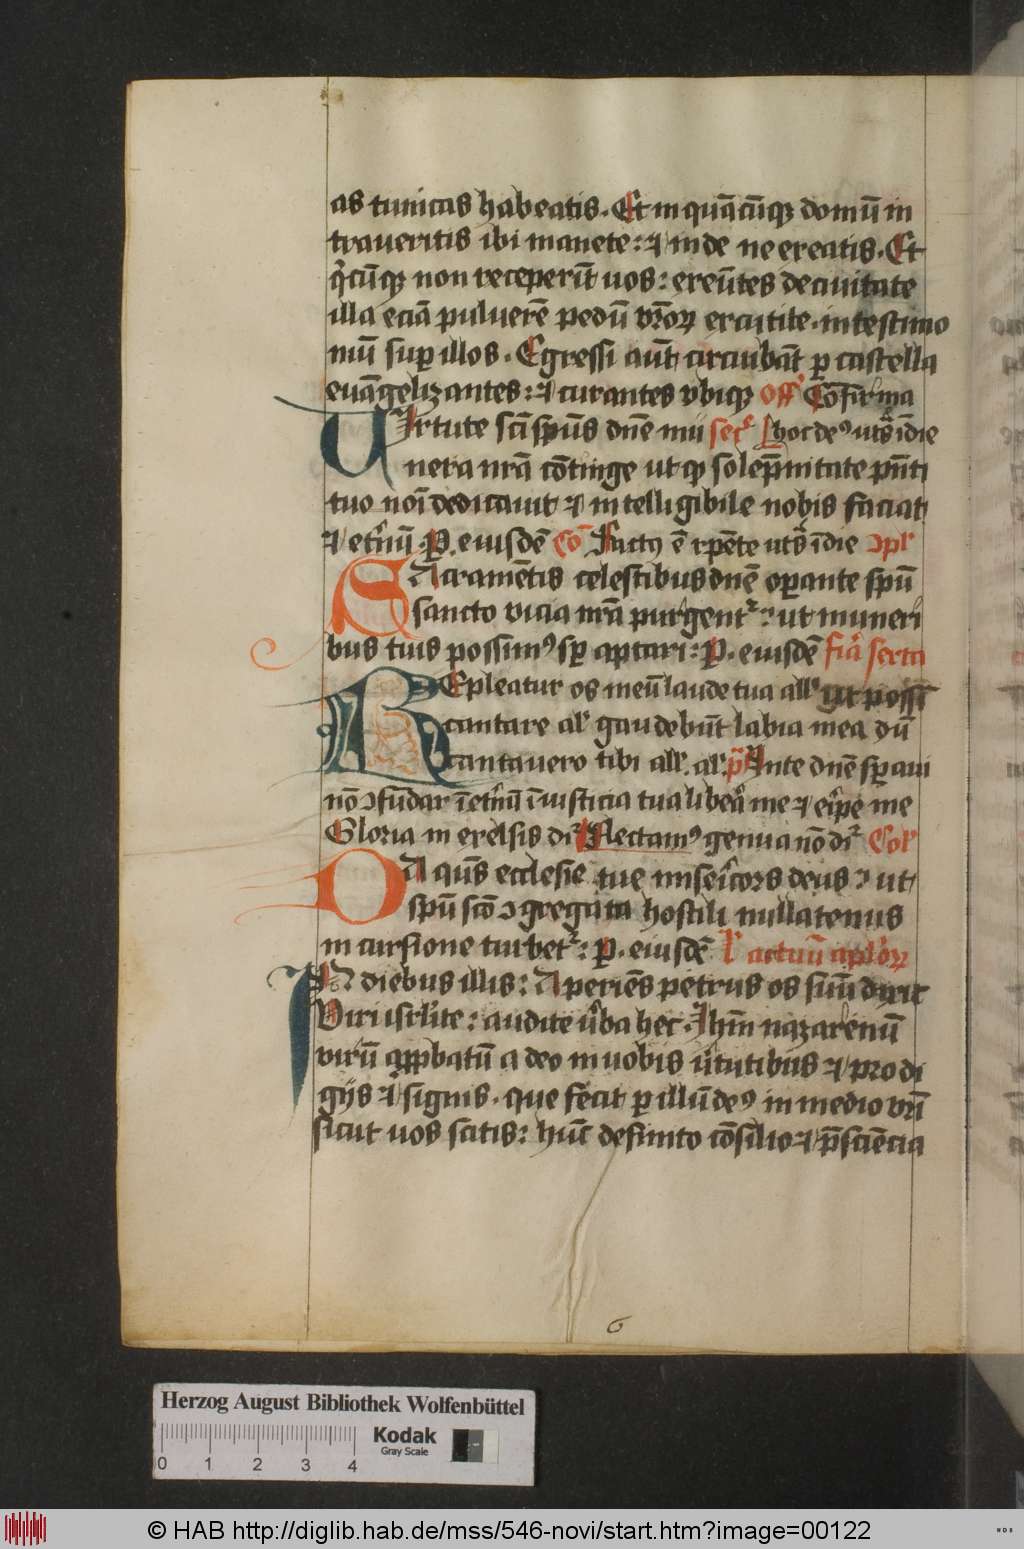 as tunicas habeatis. Et in quācūqꝫ domū in
traueritis ibi manete: ⁊ inde ne exeatis. Et
q̄cūqꝫ non receperīt uos: exeūtes de ciuitate
illa eciā puluerē pedū vr̄oꝝ excutite. in testimo
niū sup illos. Egressi aūt circuibāt ꝑ castella
euāgelizantes: ⁊ curantes vbiqꝫ Off Cōfirma
Uirtute sc̄i spūs dn̄e mu secr̄ hoc deꝰ utˢ ī die
nera nr̄a cōtinge ut qꝫ solēpnitate pn̄ti
tuo noī dedicauit ⁊ intelligibile nobis faciat
⁊ et̄nū. P. eiusdē Cō Factꝰ ē repēte utˢ ī die ɔpl
SAcramētis celestibus dn̄e oꝑante spū
sancto vicia nr̄a purgentᷣ: ut muneri
bus tuis possimꝰ sꝑ aptari: P. eiusdē fīa sexta
REpleatur os meū laude tua all ut possī
cantare al gaudebūt labia mea dū
cantauero tibi all. al. p̄ In te dn̄e sꝑaui
nō ɔfūdar ī et̄nū ī iusticia tua libeā me ⁊ eripe me
Gloria in excelsis dr̄ Flectamꝰ genua nō dr̄ Col
DA qūs ecclesie tue misericors deus ut
spū sc̄o ɔgregata hostili nullatenus
incursione turbetᷣ: P. eiusdē l̄ actuū aplōꝝ
IN diebus illis: Aperiēs petrus os suū dixit
Viri isrl̄ite: audite u̓ba hec. Ihm̄ nazarenū
virū approbatū a deo in uobis u̓tutibus ⁊ prodi
gijs ⁊ signis. que fecit ꝑ illū deꝰ in medio vr̄i
sicut uos scitis: hūc definito cōsilio ⁊ p̄sciēcia
6
Herzog August Bibliothek Wolfenbüttel
0 1 2 3 4
Kodak
Gray Scale
© HAB http://diglib.hab.de/mss/546-novi/start.htm?image=00122